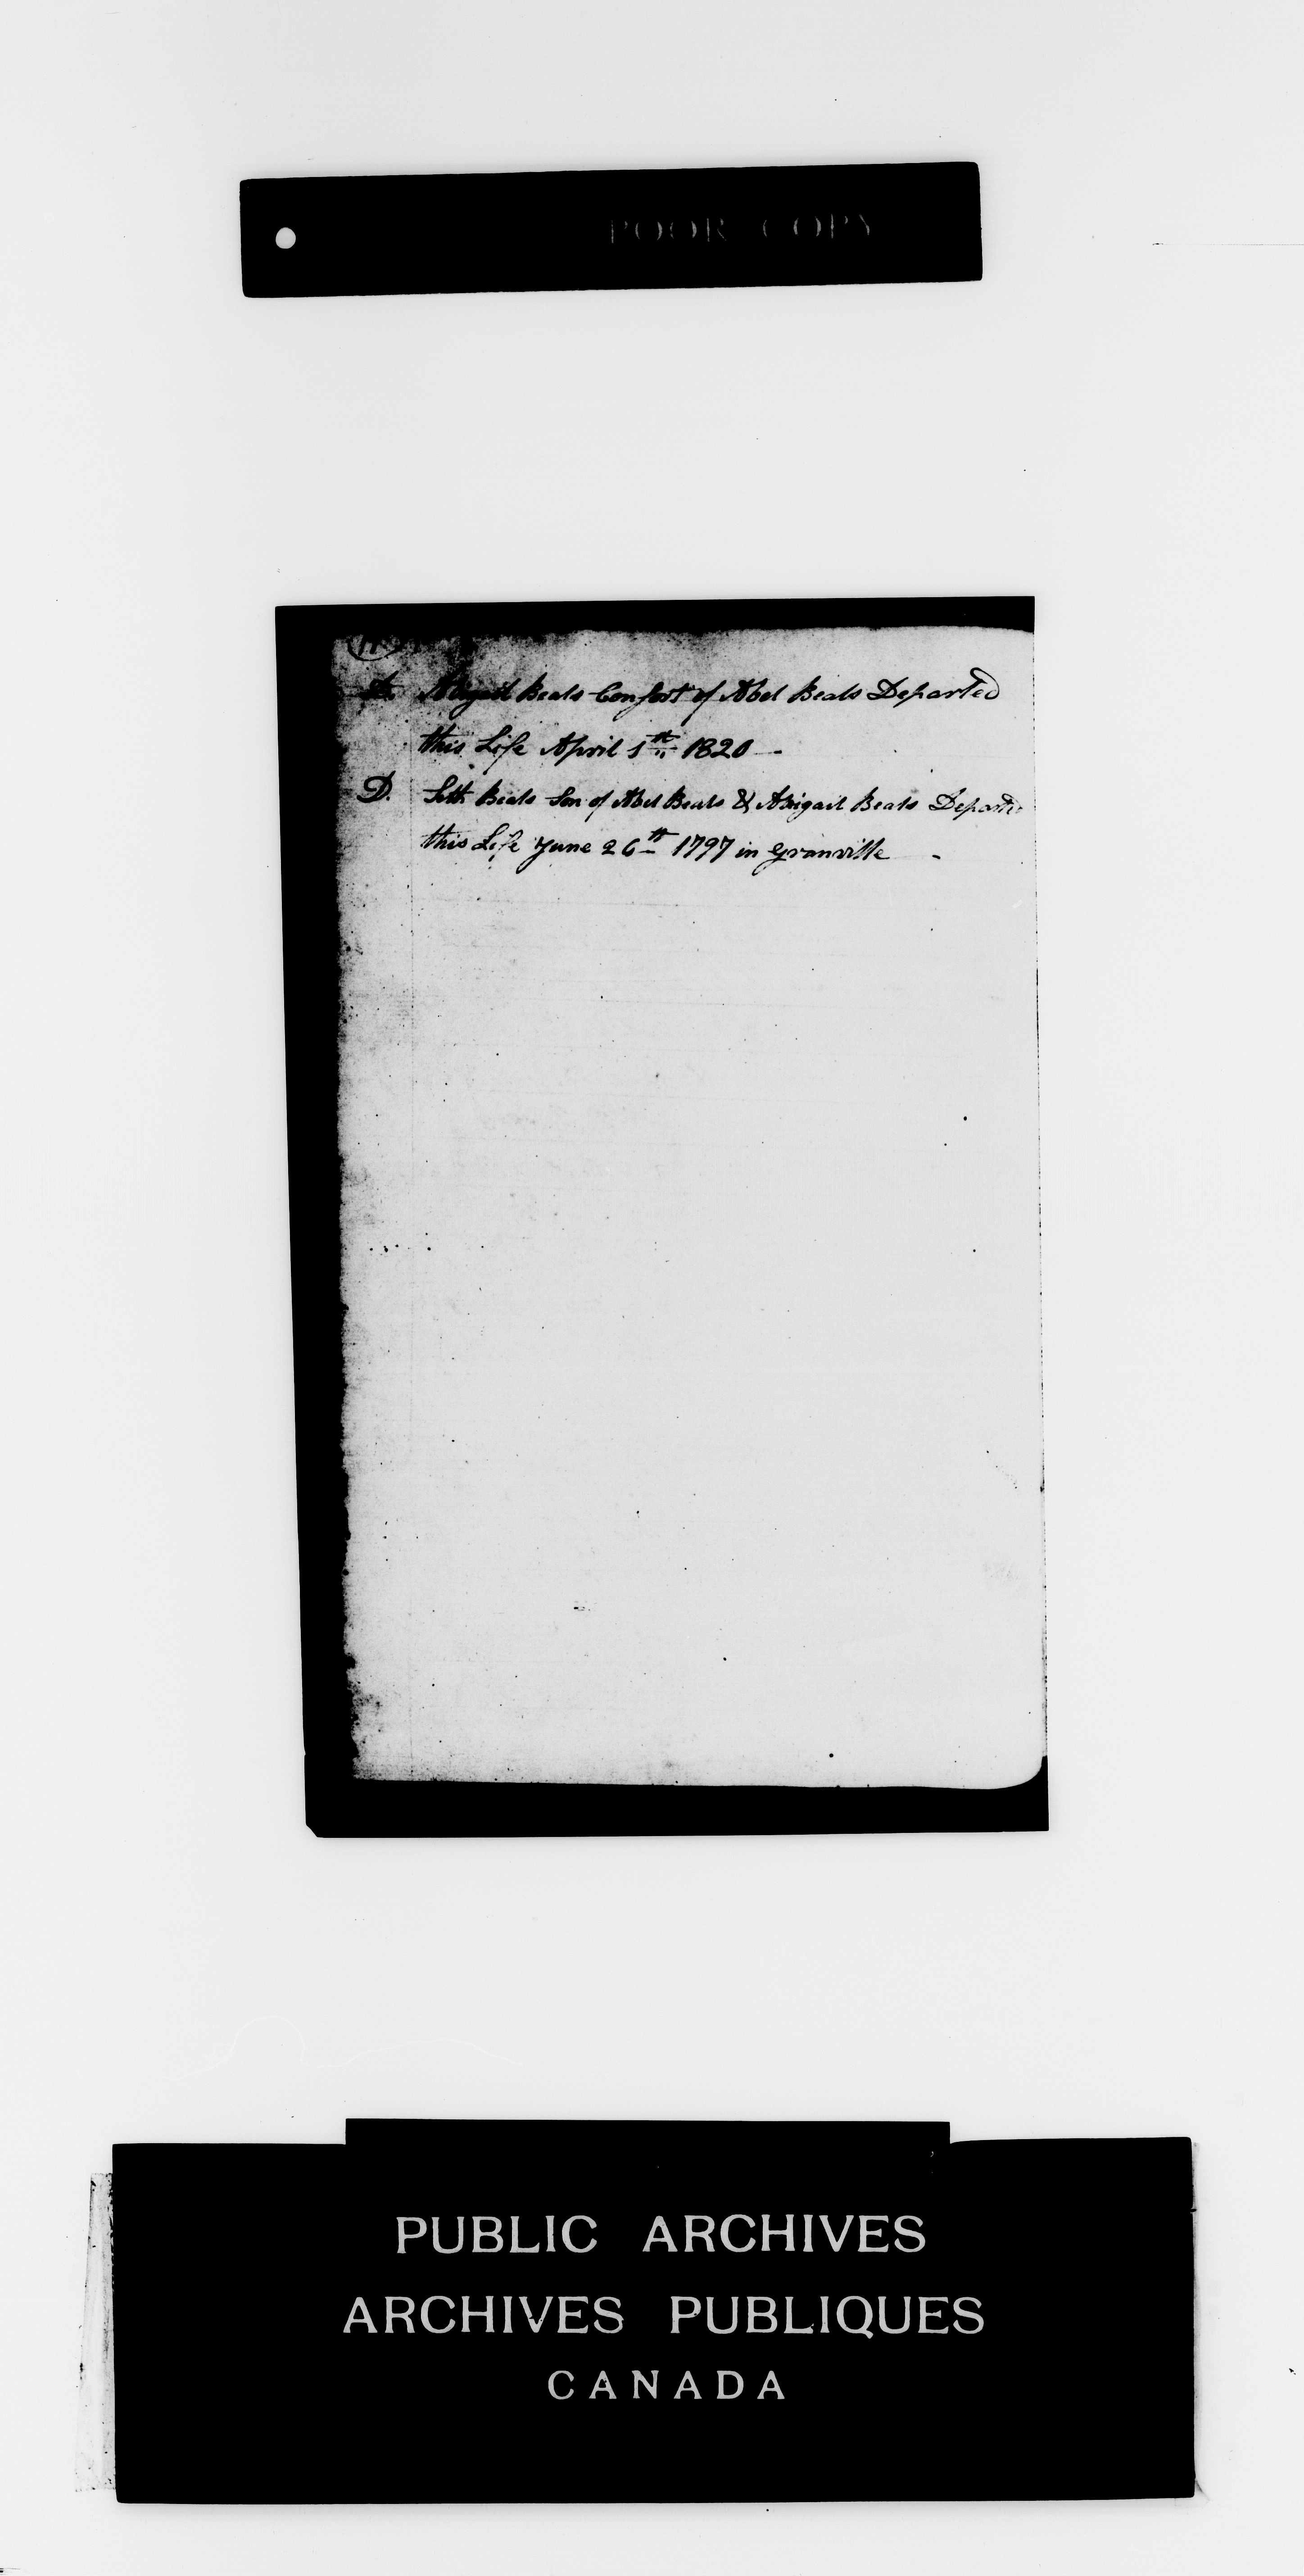 POOR COPY
D. Abigail Beals Consort of Abel Beals Departed
this Life April 1th 1820 -
D. Seth Beals Son of Abel Beals & Abigail Beals Departed
this Life June 26th 1797 in Granville -
PUBLIC ARCHIVES
ARCHIVES PUBLIQUES
CANADA